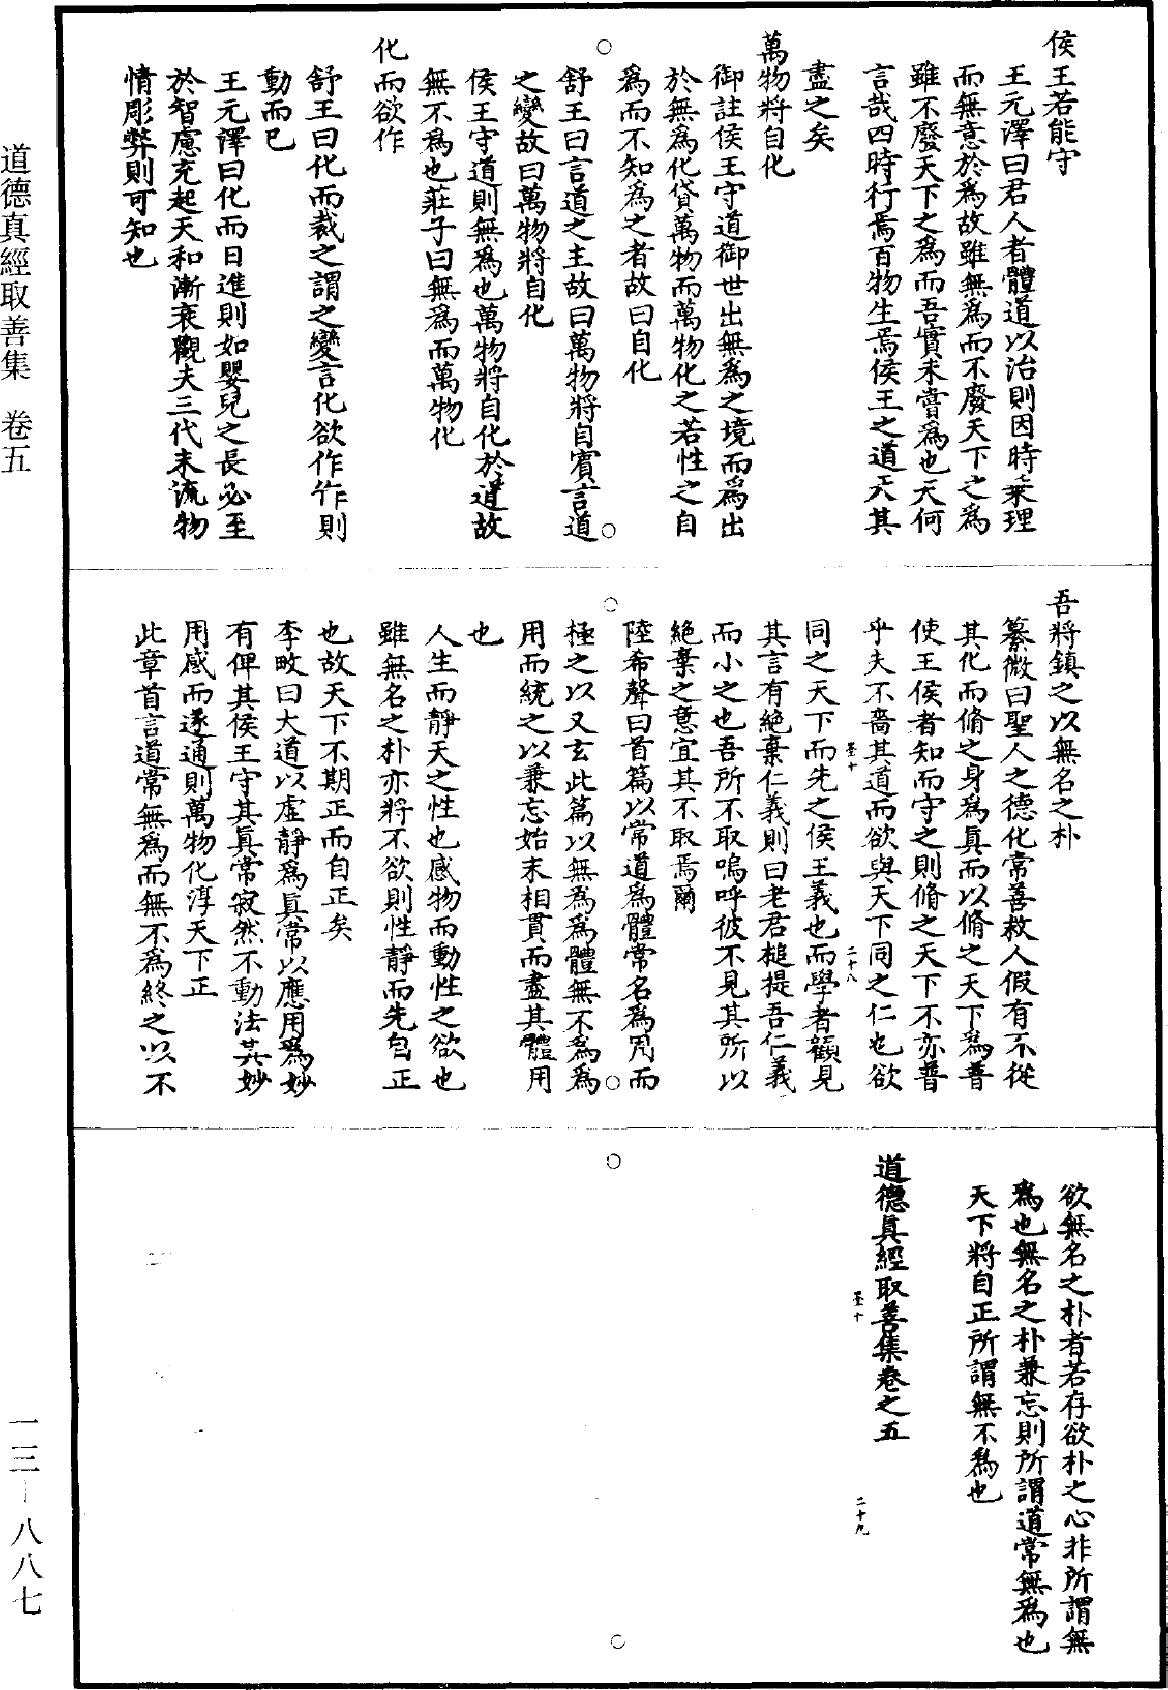 侯王若能守
王元澤曰君人者體道以治則因時乘理
而無意於為故雖無為而不廢天下之為
雖不廢天下之為而吾實未嘗為也天何
言哉四時行焉百物生焉侯王之道天其
盡之矣
萬物將自化
御註侯王守道御世出無為之境而為出
於無為化貸萬物而萬物化之若性之自
為而不知為之者故曰自化
舒王曰言道之主故曰萬物將自賓言道
之變故曰萬物將自化
侯王守道則無為也萬物將自化於道故
無不為也莊子曰無為而萬物化
化而欲作
舒王曰化而裁之謂之變言化欲作作則
動而已
王元澤曰化而日進則如嬰兒之長必至
於智慮充起天和漸衰觀夫三代末流物
情彫弊則可知也
吾將鎮之以無名之朴
纂微曰聖人之德化常善救人假有不從
其化而脩之身為真而以脩之天下為普
使王侯者知而守之則脩之天下不亦普
乎夫不嗇其道而欲與天下同之仁也欲
同之天下而先之侯王義也而學者顧見
其言有絕棄仁義則曰老君槌提吾仁義
而小之也吾所不取嗚呼彼不見其所以
絕棄之意宜其不取焉爾
陸希聲曰首篇以常道為體常名為用而
極之以又玄此篇以無為為體無不為為
用而統之以兼忘始末相貫而盡其體用
也
人生而靜天之性也感物而動性之欲也
雖無名之朴亦將不欲則性靜而先自正
也故天下不期正而自正矣
李畋曰大道以虛靜為真常以應用為妙
有俾其侯王守其真常寂然不動法其妙
用感而遂通則萬物化淳天下正
此章首言道常無為而無不為終之以不
欲無名之朴者若存欲朴之心非所謂無
為也無名之朴兼忘則所謂道常無為也
天下將自正所謂無不為也
道德真經取善集卷之五
二十八
二十九
道德真經取善集 卷五
一三—八八七